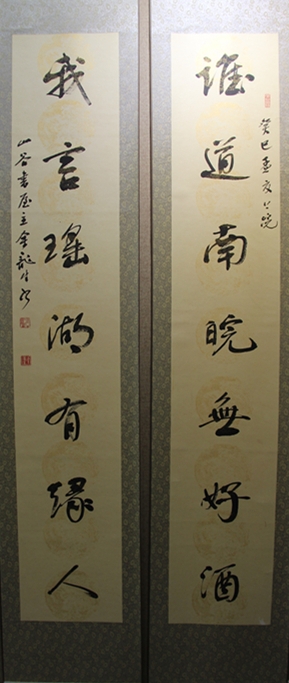 誰道南皖無好酒
癸巳孟夏
我言瑤湖有緣人
山谷書屋主金